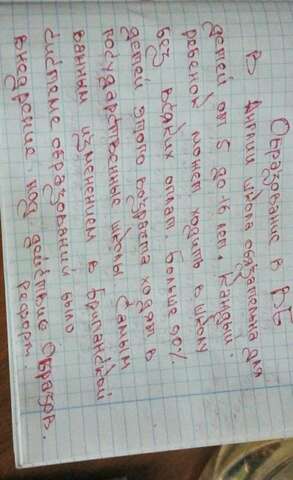 Образование в ВБ
В Англии школа обязательна для
детей от 5 до 16 лет. Каждый
ребенок может ходить в школу
без всяких оплат. Больше 90%
детей этого возраста ходят в
государственные школы. Самым
ванным изменением в британской
системе образований было
внедрение, под действие Образов.
реформ.